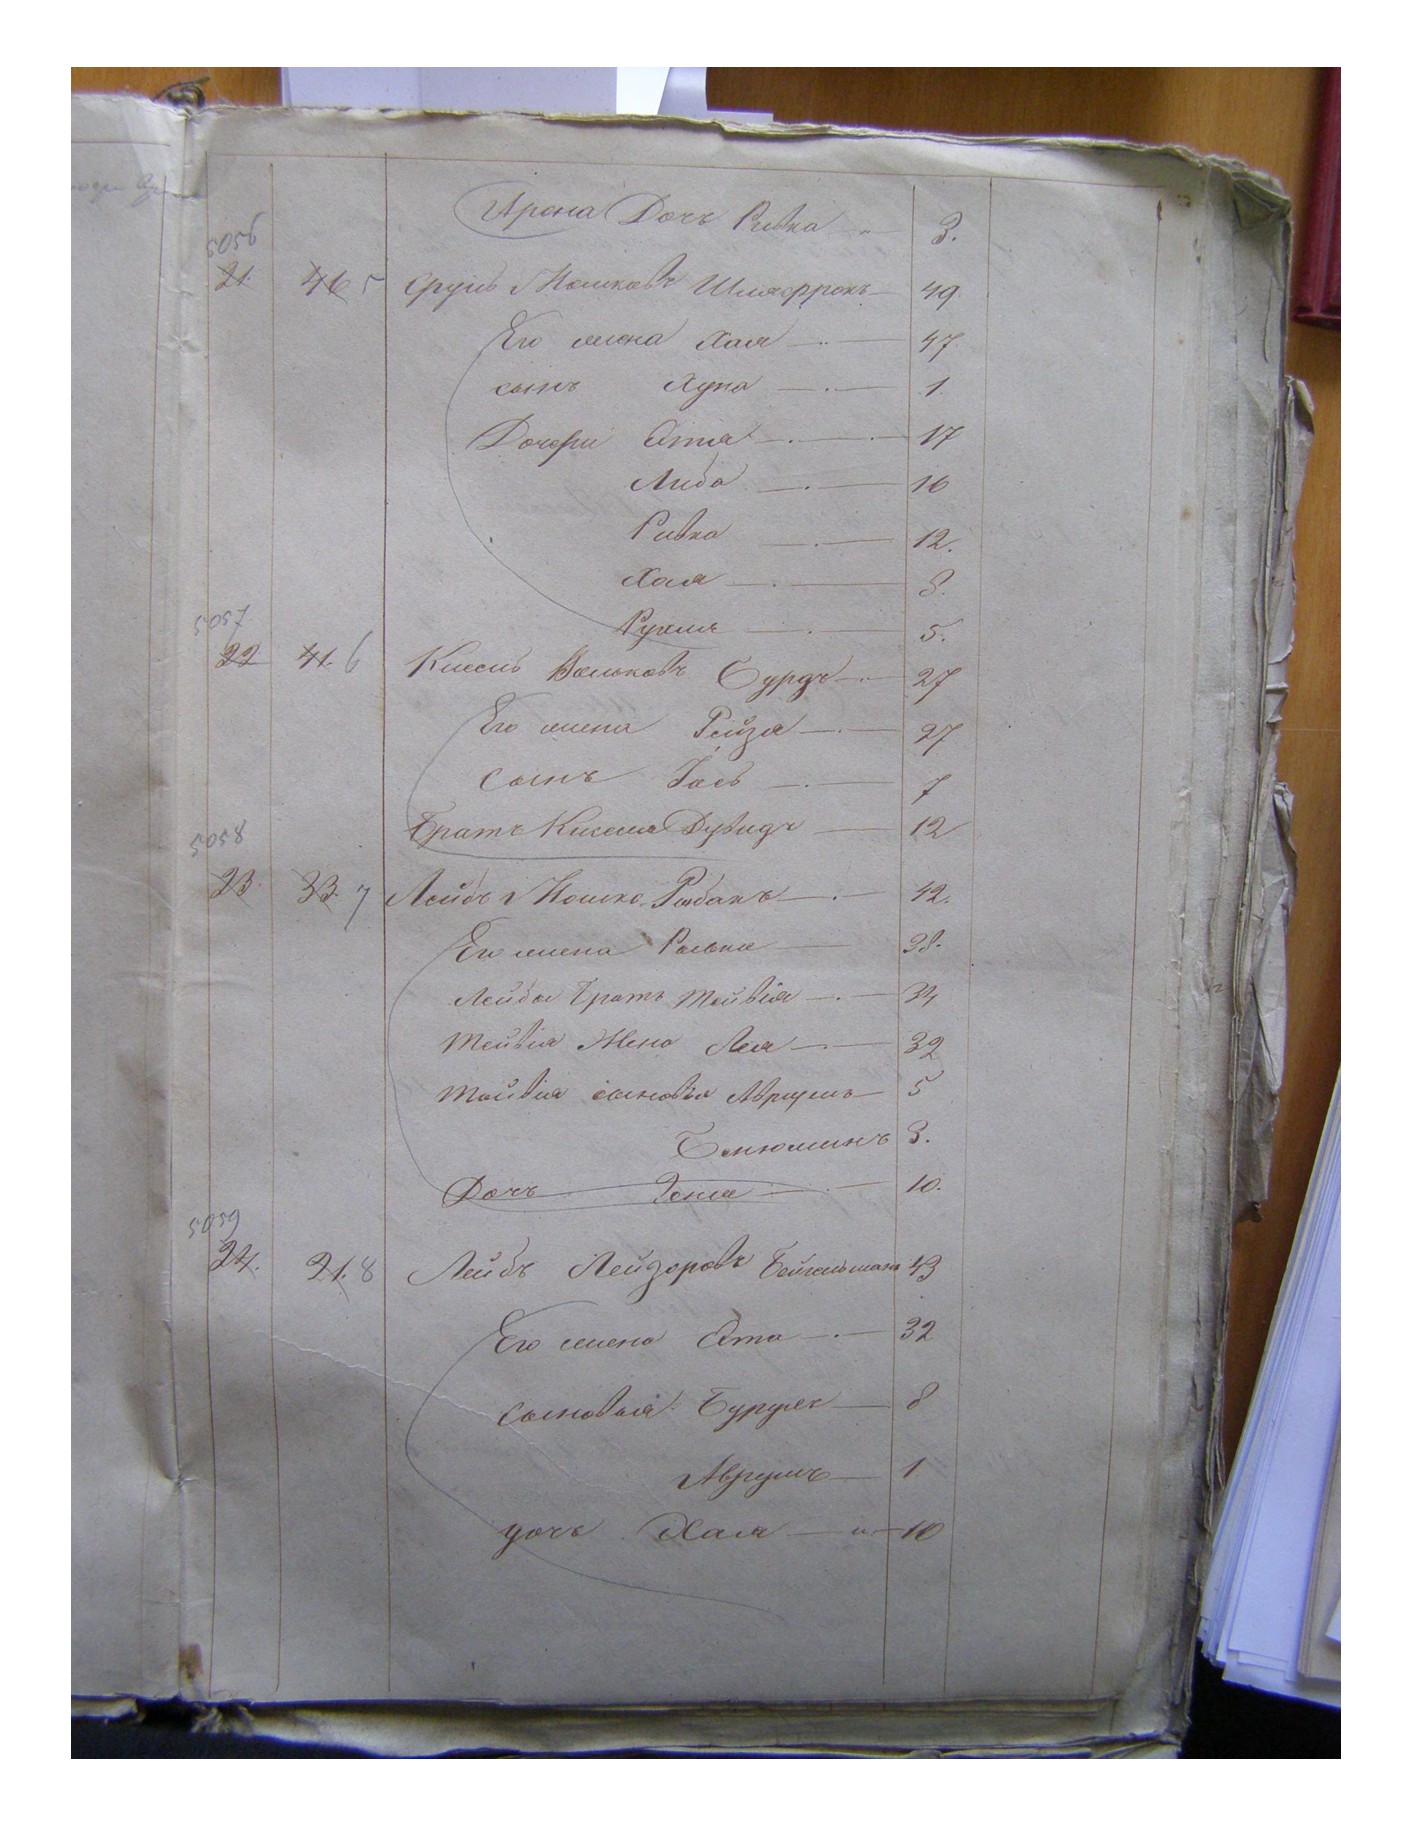 Арона Дочь Ривка 3.
5056
21. 46 5 Сруль Мошковъ Шмафронъ 49
Его жена Хая 47
сынъ Хуна 1.
Дочери Этя 17
Либа 16
Ривка 12.
Хая 8.
Рухля 5.
5057
22 41. 6 Кисель Вольковъ Сурдъ 27
Его жена Рейзя 27
Сынъ Іось 7
Братъ Киселя Дувидъ 12
5058
23. 33. 7 Лейбъ Мошко Рыбакъ 42.
Его жена 38.
Лейбы Братъ Тейвія 34
Тейвія Жена Лея 32
Тейвія сыновья Аврумъ 5
Бенюминъ 3.
Дочь 10.
5059
24. 21. 8 Лейбъ Лейзоровъ Бейгельманъ 43
Его жена Эта 32
сыновья Бурухъ 8
Аврумъ 1
дочь Хая 10